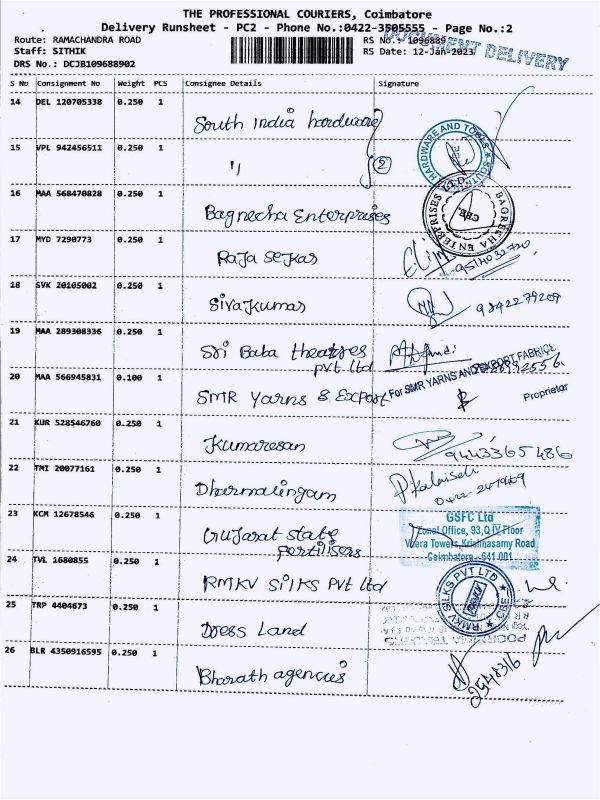 THE PROFESSIONAL COURIERS, Coimbatore
Delivery Runsheet - PC2 - Phone No.:0422-3505555 - Page No.:2
Route: RAMACHANDRA ROAD
RS No.: 1096889
DOCUMENT DELIVERY
Staff: SITHIK
RS Date: 12-Jan-2023
DRS No.: DCJB109688902
S No Consignment No Weight PCS Consignee Details Signature
14 DEL 120705338 0.250 1
South India hardware
HARDWARE AND TOOLS
15 VPL 942456511 0.250 1
"
2
16 MAA 568470828 0.250 1
Bagrecha Enterprises
BAGRECHA ENTERPRISES LTD
CBE
17 MYD 7290773 0.250 1
Raja Sekar
9514032720
18 SVK 20105002 0.250 1
Sivakumar
9842279209
19 MAA 289308336 0.250 1
Sri Baba theatres
pvt. ltd
20 MAA 566945831 0.100 1
SMR Yarns & Export
For SMR YARNS AND EXPORT FABRICS
Proprietor
21 KUR 528546760 0.250 1
Kumaresan
9443365486
22 TMI 20077161 0.250 1
Dharmalingam
P. Kalaiselvi
0422
23 KCM 12678546 0.250 1
Gujarat state
fertilisers
GSFC Ltd
Zonal Office, 93, Q IV Floor
Veera Towers, Krishnasamy Road
Coimbatore - 641 001
24 TVL 1680855 0.250 1
RMKV Silks Pvt ltd
RMKV SILKS PVT LTD
25 TRP 4404673 0.250 1
Dress Land
26 BLR 4350916595 0.250 1
Bharath agencies
2548316